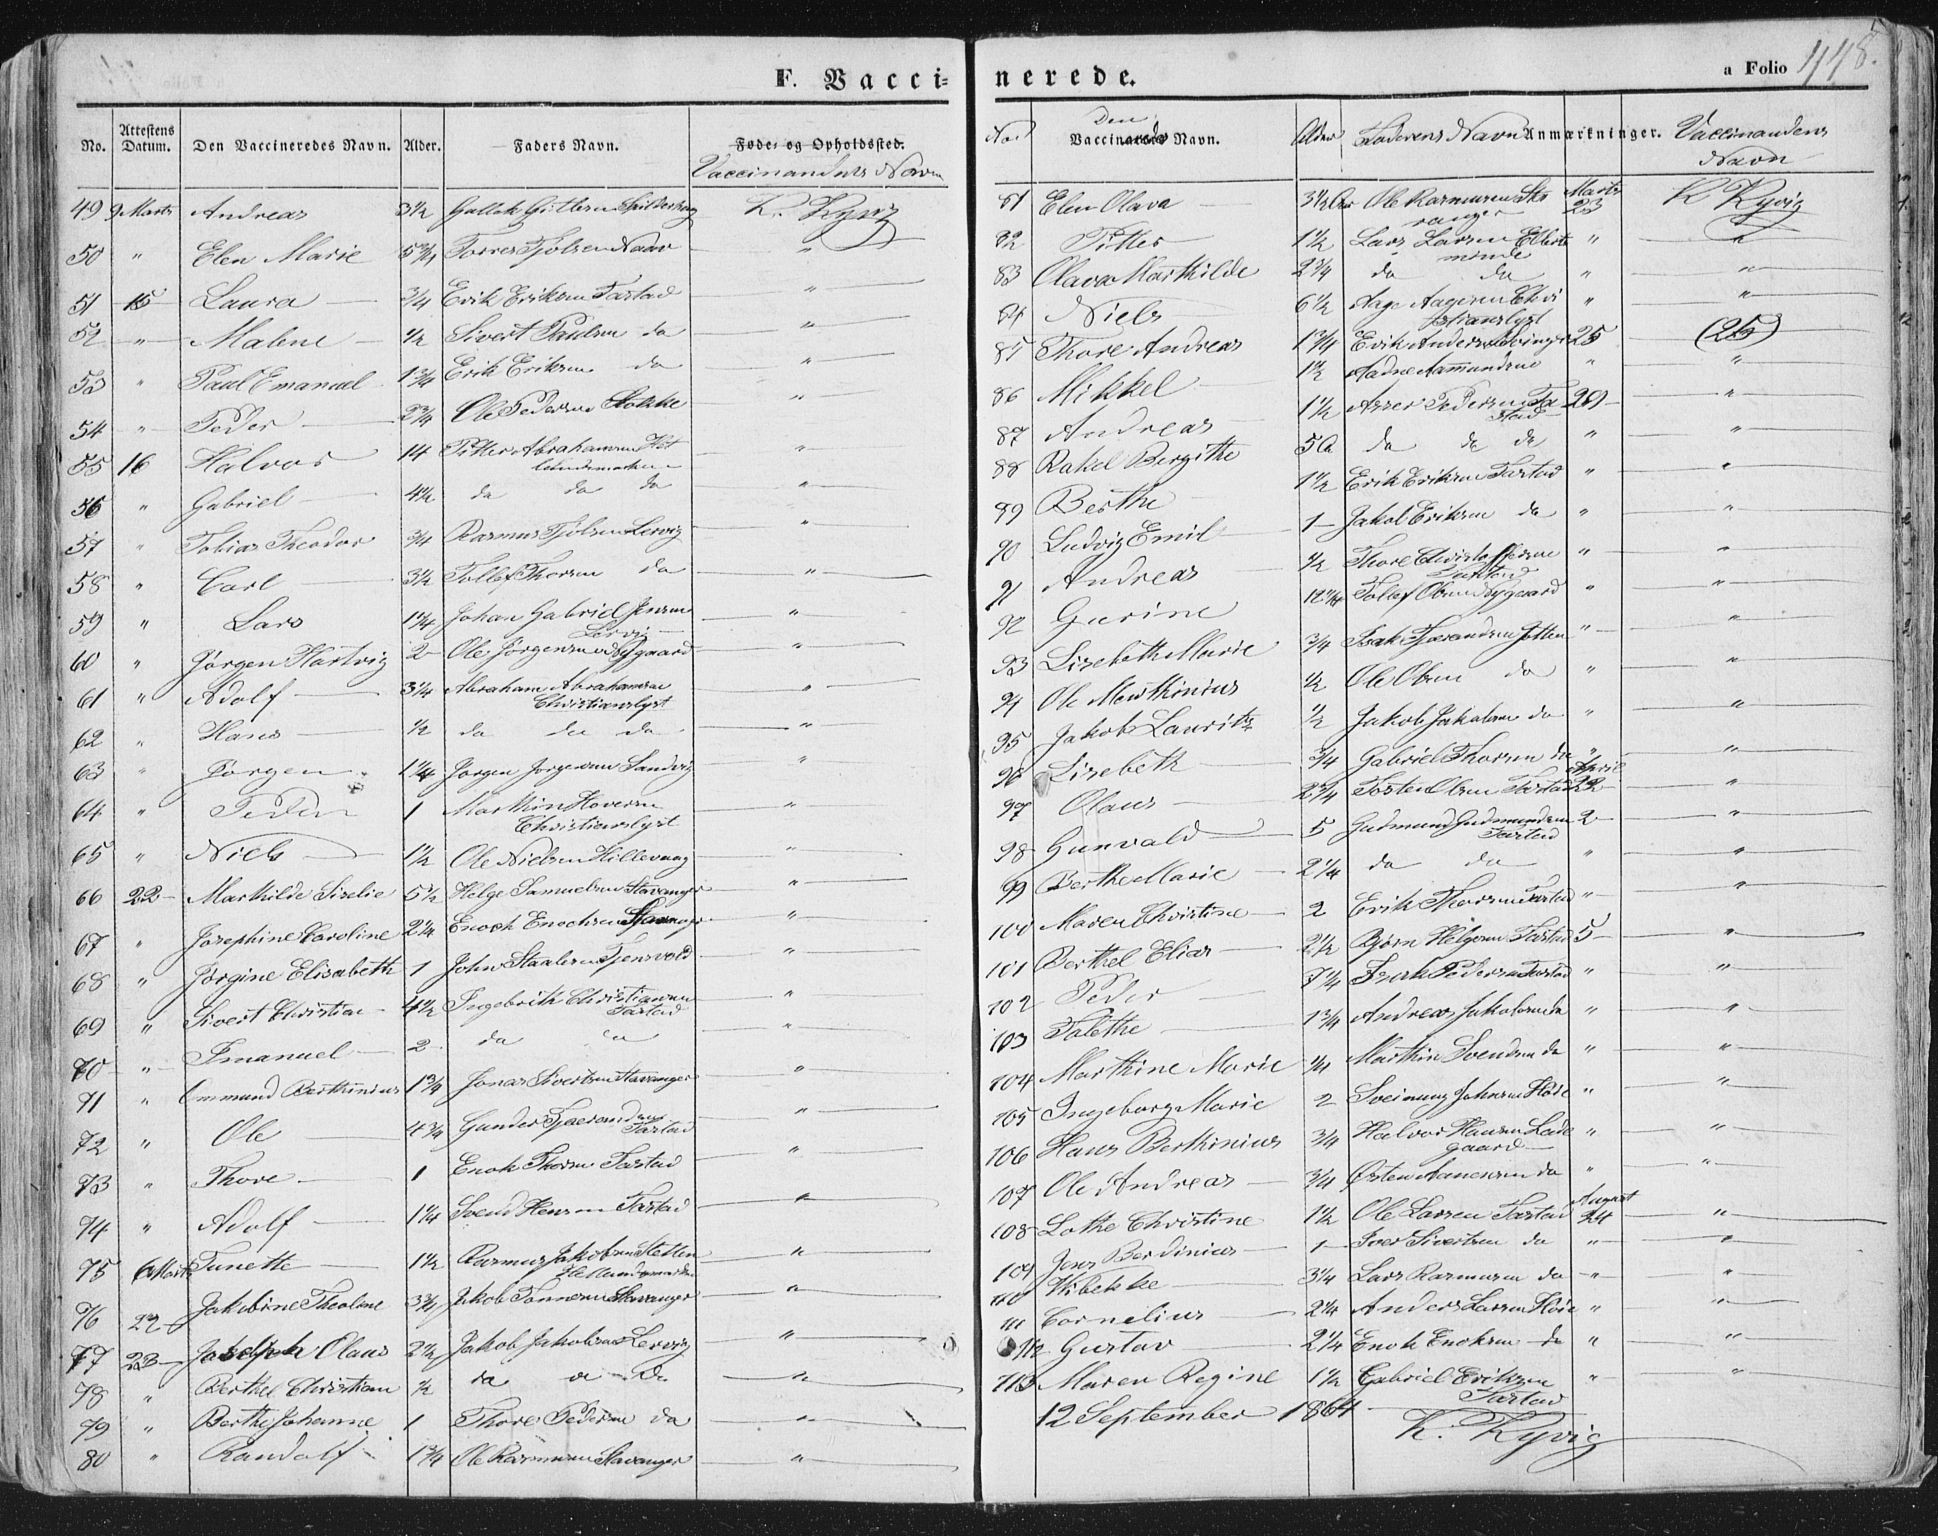 F. Vacci-
No. Attestens Datum. Den Vaccineredes Navn. Alder. Faders Navn. Føde- og Opholdssted.
Vaccinandens Navn
49 9 Marts Andreas 3½ K. Kyvig
50 " Elen Marie 5¾ "
51 15 Laura ¾ Erik Eriksen Tastad "
52 " Malene ½ Sivert Paulsen do "
53 " Paul Emanuel 1¾ Erik Eriksen do "
54 " Peder 2¾ Ole Pedersen Stokke "
55 16 Halvor 14 Pitter Abrahamsen "
56 " Gabriel 4½ do do do "
57 " Tobias Theodor ¾ Rasmus Lervig "
58 " Carl 3½ Tollef Thorsen do "
59 " Lars 1¼ Johan Gabriel Jensen "
Lervig
60 " Jørgen Hartvig 2 Ole Jørgensen "
61 " Adolf 3¼ Abraham Abrahamsen "
Christianslyst
62 " Hans ½ do do do "
63 " Jørgen 1¼ Jørgen Jørgensen Sandvig "
64 " Peder 1 Marthin "
Christianslyst
65 " Niels 1½ Ole Nielsen Hillevaag "
66 22 Marthilde Sirelie 5½ Helge Samuelsen Stavanger "
67 " Josephine Caroline 2¼ Enoch Enochsen Stavanger "
68 " Jørgine Elisabeth 1 John "
69 " Sivert Christian 4½ Ingebrith Christiansen "
Tastad
70 " Emanuel 2 do "
71 " Ommund Berthinius 1¾ Jonas Sivertsen Stavanger "
72 " Ole 4¾ Gunder "
Tastad
73 " Thore 1 Enok Thorsen Tastad "
74 " Adolf 1¼ Svend Tastad "
75 6 Marts Tunette 1½ Rasmus Jakobsen "
76 22 Jakobine Theoline 3¾ Jakob Stavanger "
77 23 Olaus 2½ Jakob Jakobsen Lervig "
78 " Berthel Christian ½ "
79 " Berthe Johanne 1 Thore Pedersen do "
80 " Randolf 1¾ Ole Rasmusen Stavanger "
nerede.
a Folio 448.
No. Den Vaccineredes Navn. Alder Faderens Navn Anmærkninger. Vaccinandens
Navn
81 Elen Olava 3½ Ole Rasmusen Marts 23 K Kyvig
82 Pitter 1½ Lars Larsen " "
83 Olava Marthilde 2¾ do do " "
84 Niels 6½ Aage Aagesen Chri " "
stianslyst
85 Thore Andreas 1¾ Erik 25 (25)
86 Mikkel 1½ Aadne Aamundsen " "
87 Andreas 1½ Asser Pedersen Ta 29 "
stad
88 Rakel Bergithe 5 do do do " "
89 Berthe 1½ Erik Eriksen Tastad " "
90 Ludvig Emil 1 Jakob Eriksen do " "
91 Andreas ½ Thore Christoffersen " "
Tastad
92 Gurine Tollef Olsen " "
93 Lisebeth Marie ¾ Isak Jotten " "
94 Ole Marthinius ½ Ole Olsen do " "
95 Jakob Laurits ½ Jakob Jakobsen do " "
96 Lisebeth ¾ Gabriel Thorsen do " "
97 Olaus 2¾ Tosten Olsen Tastad April 22 "
98 Gunvald 5 Gudmund Gudmundsen 2 "
Tastad
99 Berthe Marie 2¼ do do " "
100 Maren Christine 2 Erik Thorsen Tastad " "
101 Berthel Elias 2½ Bjørn Helgesen Tastad 5 "
102 Peder 7¼ Pedersen Tastad " "
103 Talethe 1¾ Andreas Jakobsen do " "
104 Marthine Marie ¼ Marthin Svendsen do " "
105 Ingeborg Marie 2 Sveinung Johnsen " "
106 Hans Berthinius ¾ Halvor Hansen Lade " "
gaard
107 Ole Andreas ¾ Østen Aanensen do " "
108 Lothe Christine 1½ Ole Larsen Tastad August 24 "
109 Jens Berdinius 1 Iver Sivertsen do " "
110 Wibekke 3¼ Lars Rasmusen do " "
111 Cornelius 2¼ Anders Larsen " "
112 Gustav 2¼ Enok Enoksen do " "
113 Maren Regine 1½ Gabriel Eriksen " "
Tastad
12 September 1864
K. Kyvig